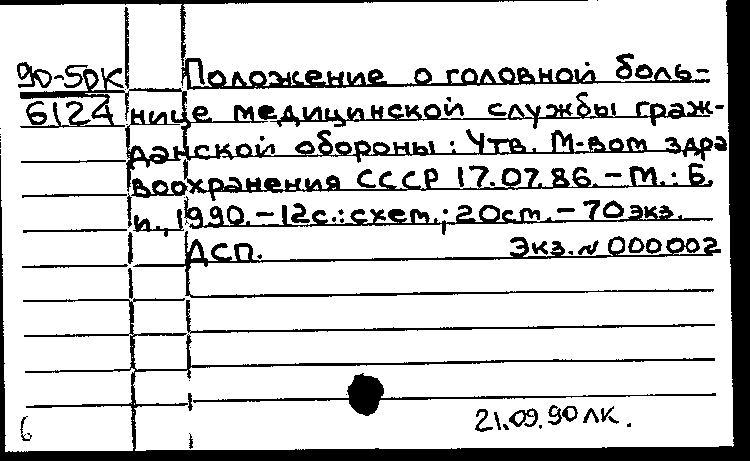 90-5DK Положение о головной боль-
6124 нице медицинской службы граж-
данской обороны: Утв. М-вом здра
воохранения СССР 17.07.86.-М.: Б.
и., 1990.-12с.:схем.; 20см.-70экз.
ДСП. Экз.№ 000002
21.09.90 ЛК.
6